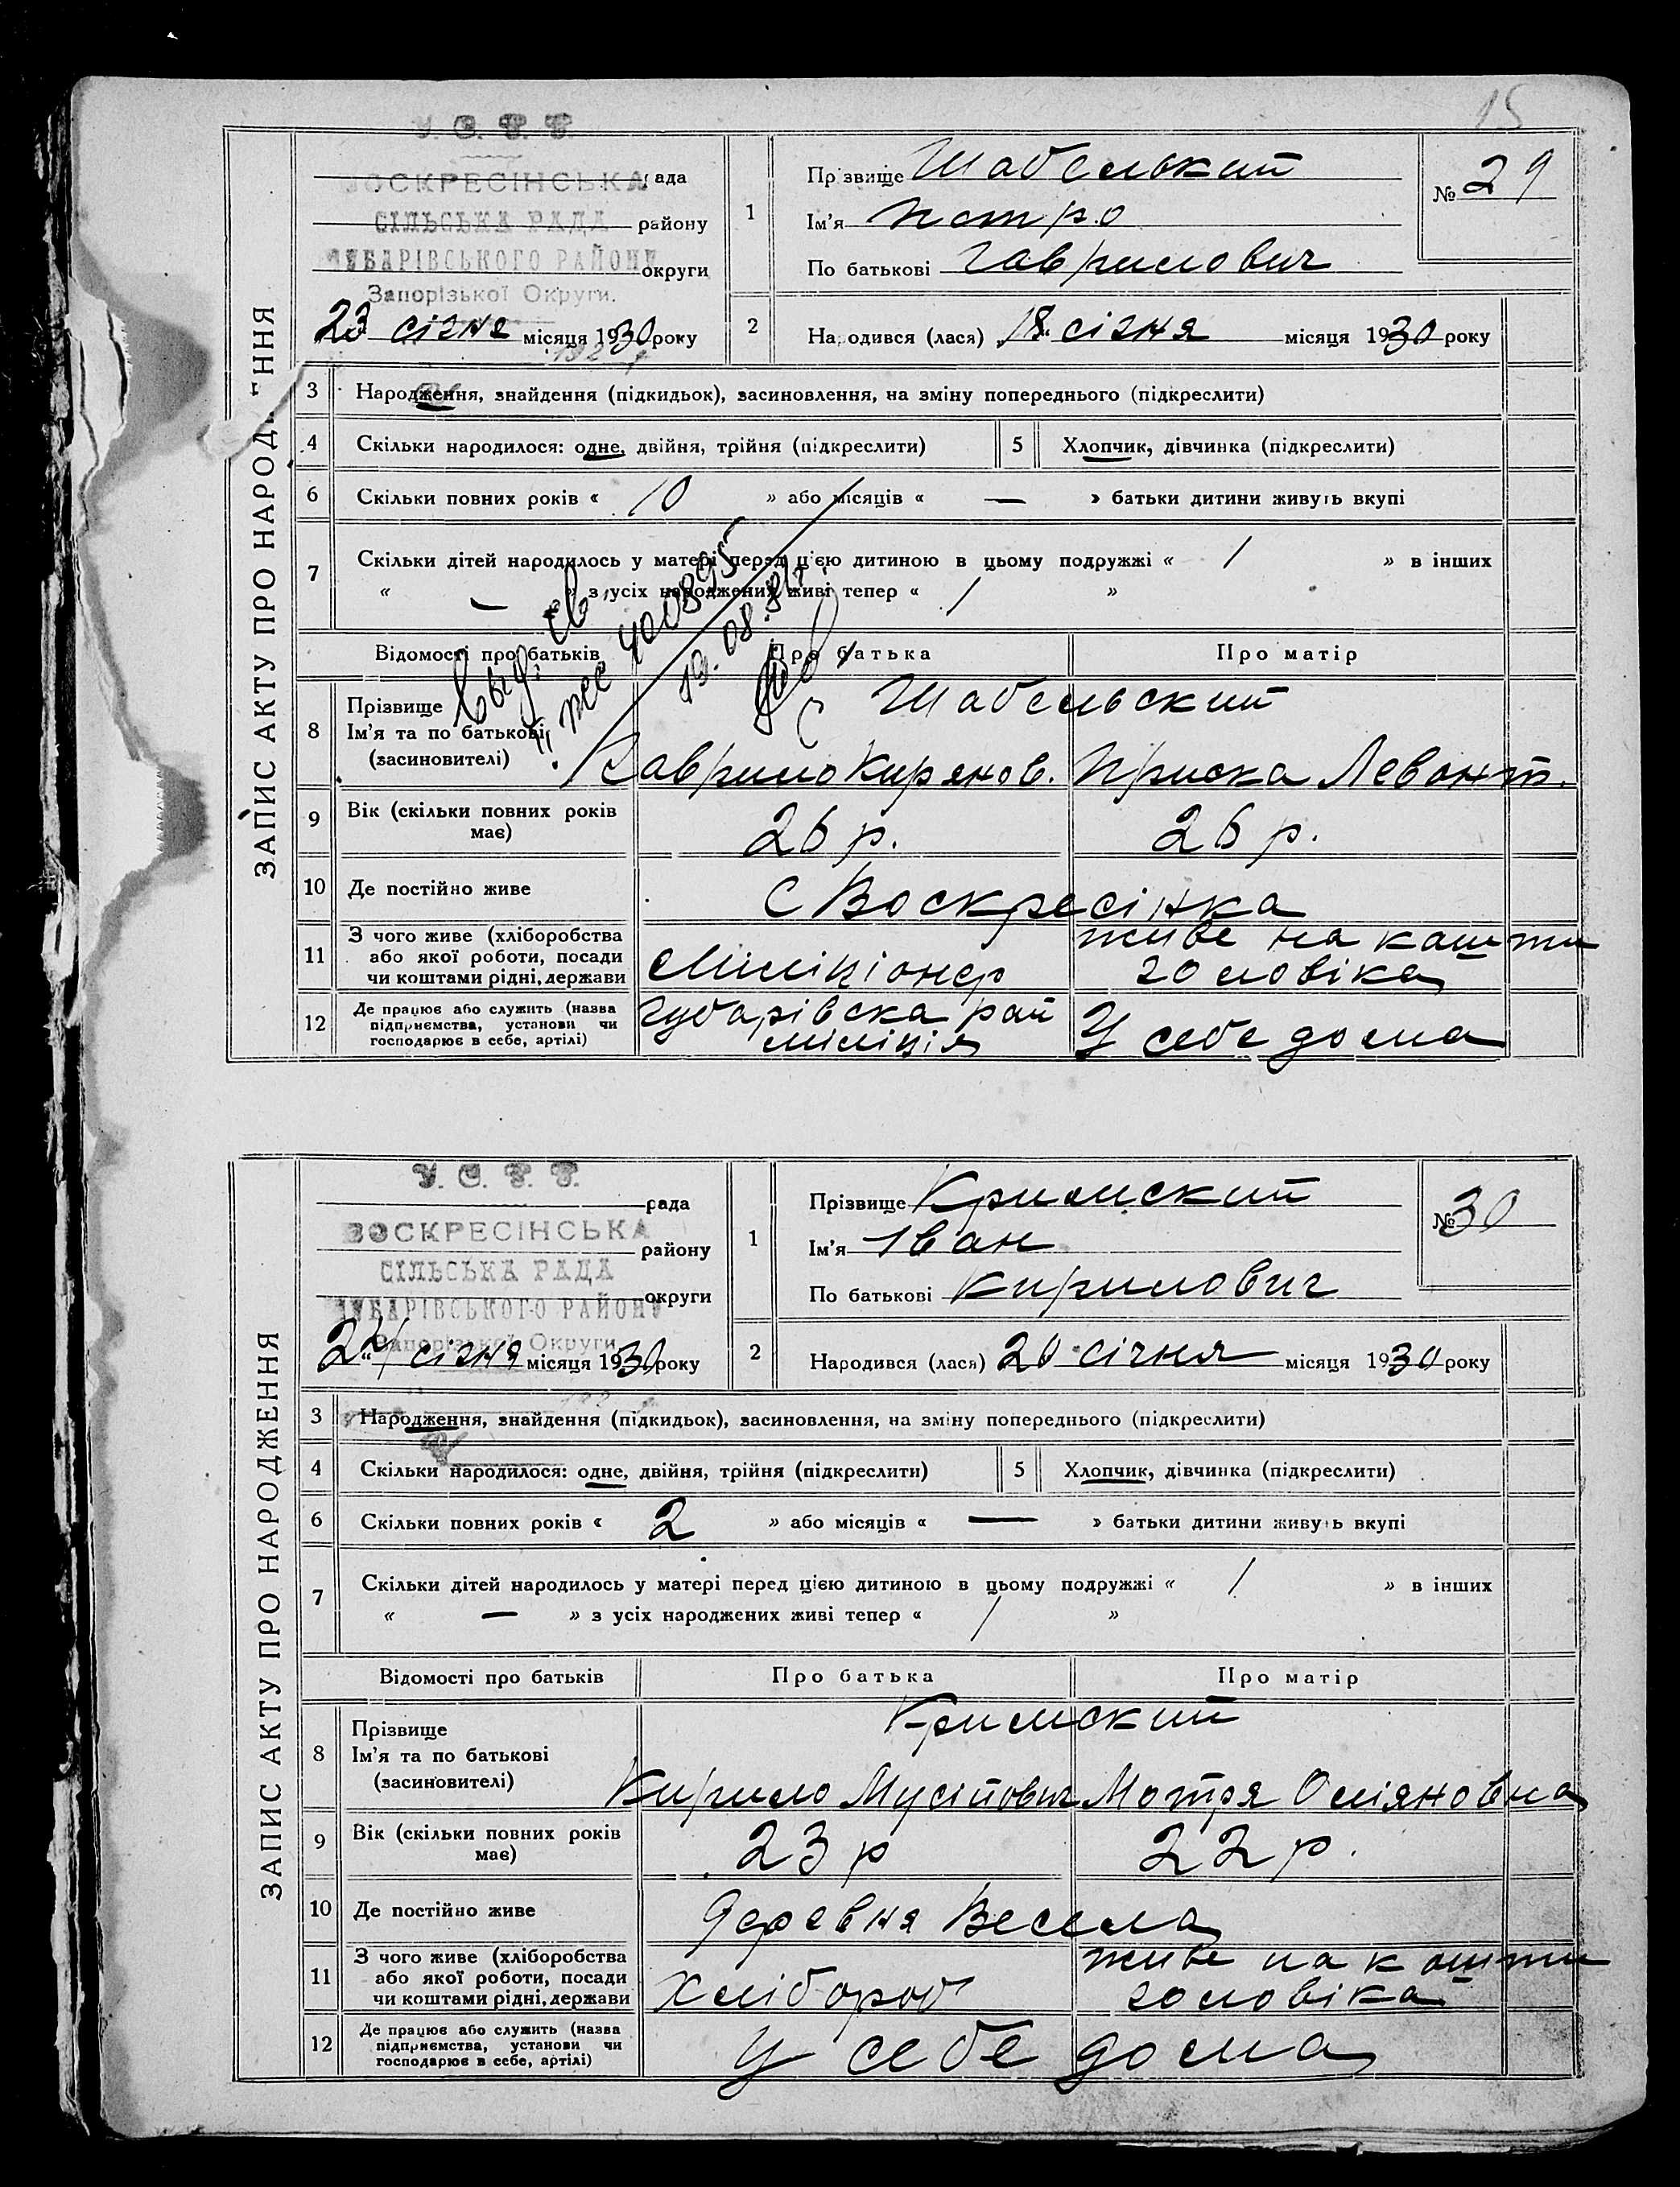 15
У. С. Р. Р.
ВОСКРЕСІНСЬКА рада
СІЛЬСЬКА РАДА району
ЧУБАРІВСЬКОГО РАЙОНУ округи
Запорізької Округи.
23 січня місяця 1930 року
1 Прізвище Шабельский
Ім'я Петро
По батькові Гаврилович
№ 29
2 Народився (лася) 18 січня місяця 1930 року
ЗАПИС АКТУ ПРО НАРОДЖЕННЯ
3 Народження, знайдення (підкидьок), засиновлення, на зміну попереднього (підкреслити)
4 Скільки народилося: одне, двійня, трійня (підкреслити) 5 Хлопчик, дівчинка (підкреслити)
6 Скільки повних років « 10 » або місяців « — » батьки дитини живуть вкупі
7 Скільки дітей народилось у матері перед цією дитиною в цьому подружжі « 1 » в інших
« — » з усіх народжених живі тепер « 1 »
Выд. св
19.08.
Відомості про батьків Про батька Про матір
8 Прізвище Шабельский
Ім'я та по батькові
(засиновителі) Гаврило Кирянов. Приска Левонт.
9 Вік (скільки повних років має) 26 р. 26 р.
10 Де постійно живе С Воскресінка
11 З чого живе (хліборобства або якої роботи, посади чи коштами рідні, держави Міліціонер живе на кошти чоловіка
12 Де працює або служить (назва підприємства, установи чи господарює в себе, артілі) Чубарівска рай міліція У себе дома
У. С. Р. Р.
рада
ВОСКРЕСІНСЬКА району
СІЛЬСЬКА РАДА
округи
ЧУБАРІВСЬКОГО РАЙОНУ
Запорізької Округи
24 січня місяця 1930 року
1 Прізвище Кримский
Ім'я Іван
По батькові Кирилович
№ 30
2 Народився (лася) 20 січня місяця 1930 року
ЗАПИС АКТУ ПРО НАРОДЖЕННЯ
3 Народження, знайдення (підкидьок), засиновлення, на зміну попереднього (підкреслити)
4 Скільки народилося: одне, двійня, трійня (підкреслити) 5 Хлопчик, дівчинка (підкреслити)
6 Скільки повних років « 2 » або місяців « — » батьки дитини живуть вкупі
7 Скільки дітей народилось у матері перед цією дитиною в цьому подружжі « 1 » в інших
« — » з усіх народжених живі тепер « 1 »
Відомості про батьків Про батька Про матір
8 Прізвище Кримский
Ім'я та по батькові
(засиновителі) Кирило Мусіпович Мотря Оміяновна
9 Вік (скільки повних років має) 23 р 22 р.
10 Де постійно живе Деревня Весела
11 З чого живе (хліборобства або якої роботи, посади чи коштами рідні, держави Хлібороб живе на кошти чоловіка
12 Де працює або служить (назва підприємства, установи чи господарює в себе, артілі) У себе дома